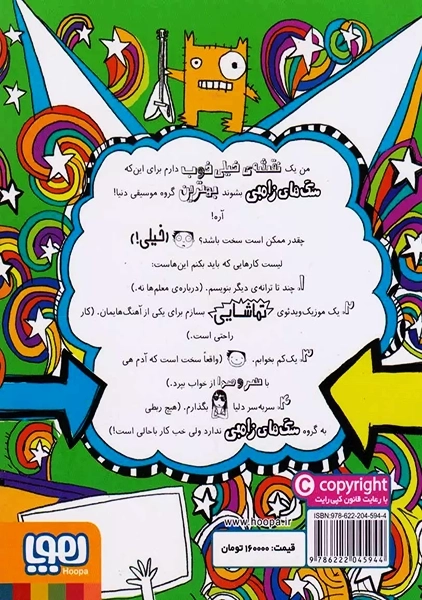 من یک نقشه‌ی خیلی خوب دارم برای این‌که
سگ‌های زامبی بشوند بهترین گروه موسیقی دنیا!
آره!
چقدر ممکن است سخت باشد؟ (خیلی!)
لیست کارهایی که باید بکنم این‌هاست:
۱. چند تا ترانه‌ی دیگر بنویسم. (درباره‌ی معلم‌ها نه.)
۲. یک موزیک‌ویدئوی تماشایی بسازم برای یکی از آهنگ‌هایمان. (کار
راحتی است.)
۳. یک‌کم بخوابم. (واقعاً سخت است که آدم هی
با سروصدا از خواب بپرد.)
۴. سربه‌سر دلیا بگذارم. (هیچ ربطی
به گروه سگ‌های زامبی ندارد ولی خب کار باحالی است!)
© copyright
با رعایت قانون کپی‌رایت
ISBN:978-622-204-594-4
9 786222 045944
www.hoopa.ir
قیمت: ۱۶۰۰۰۰ تومان
هوپا
Hoopa